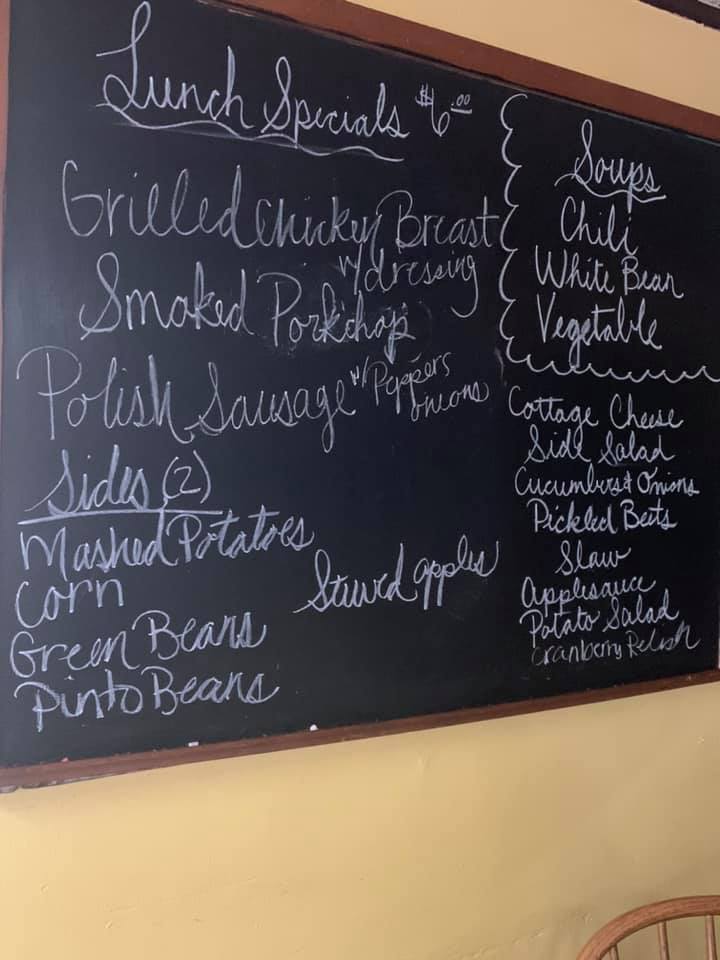 Lunch Specials $6.00
Grilled Chicken Breast
w/ dressing
Smoked Porkchop
Polish Sausage w/ Peppers
onions
Sides (2)
Mashed Potatoes
Corn
Stewed apples
Green Beans
Pinto Beans
Soups
Chili
White Bean
Vegetable
Cottage Cheese
Side Salad
Cucumbers & Onions
Pickled Beets
Slaw
Applesauce
Potato Salad
Cranberry Relish